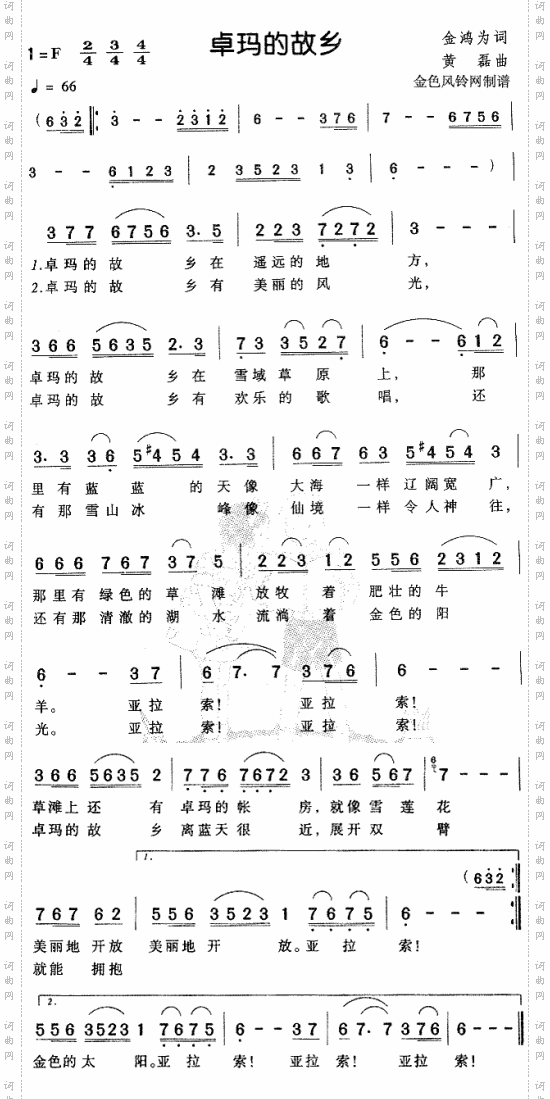 卓玛的故乡
1=F 2/4 3/4 4/4
金鸿为词
黄 磊曲
♩= 66
金色风铃网制谱
( 6 3 2 ‖: 3 - - 2 3 1 2 | 6 - - 3 7 6 | 7 - - 6 7 5 6 |
3 - - 6 1 2 3 | 2 3 5 2 3 1 3 | 6 - - - ) |
3 7 7 6 7 5 6 3. 5 | 2 2 3 7 2 7 2 | 3 - - - |
1.卓玛的 故 乡 在 遥远的 地 方,
2.卓玛的 故 乡 有 美丽的 风 光,
3 6 6 5 6 3 5 2. 3 | 7 3 3 5 2 7 | 6 - - 6 1 2 |
卓玛的 故 乡 在 雪域 草 原 上, 那
卓玛的 故 乡 有 欢乐 的 歌 唱, 还
3. 3 3 6 5 #4 5 4 3. 3 | 6 6 7 6 3 5 #4 5 4 3 |
里 有 蓝 蓝 的 天 像 大海 一样 辽阔宽 广,
有 那 雪山 冰 峰 像 仙境 一样 令人神 往,
6 6 6 7 6 7 3 7 5 | 2 2 3 1 2 5 5 6 2 3 1 2 |
那里有 绿色的 草 滩 放牧 着 肥壮的 牛
还有那 清澈的 湖 水 流淌 着 金色的 阳
6 - - 3 7 | 6 7. 7 3 7 6 | 6 - - - |
羊。 亚拉 索! 亚拉 索!
光。 亚拉 索! 亚拉 索!
3 6 6 5 6 3 5 2 | 7 7 6 7 6 7 2 3 | 3 6 5 6 7 | 6 7 - - - |
草滩上 还 有 卓玛的 帐 房, 就像 雪 莲 花
卓玛的 故 乡 离蓝天 很 近, 展开 双 臂
1.
( 6 3 2
7 6 7 6 2 | 5 5 6 3 5 2 3 1 7 6 7 5 | 6 - - - :‖
美丽地 开放 美丽地 开 放。亚 拉 索!
就能 拥抱
2.
5 5 6 3 5 2 3 1 7 6 7 5 | 6 - - 3 7 | 6 7. 7 3 7 6 | 6 - - - ‖
金色的 太 阳。亚 拉 索! 亚拉 索! 亚拉 索!
词曲网